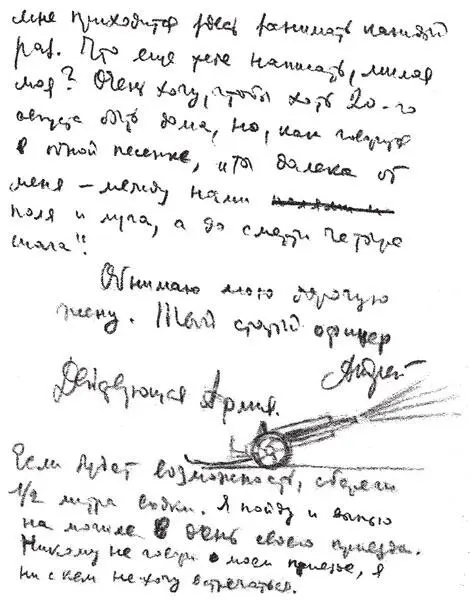 мне приходится здесь занимать каждый
раз. Что еще тебе написать, милая
моя? Очень хочу, чтобы хоть 20-го
августа быть дома, но, как говорится
в одной песенке, "ты далека от
меня – между нами
поля и луга, а до смерти четыре
шага".
Обнимаю мою дорогую
жену. Твой старый офицер
Андрей
Действующая Армия.
Если будет возможность, сбереги
1/2 литра водки. Я пойду и выпью
на могиле в день своего приезда.
Никому не говори о моем приезде, я
ни с кем не хочу встречаться.